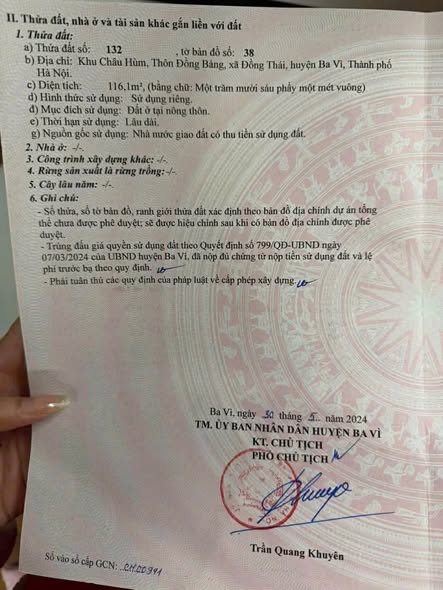 II. Thửa đất, nhà ở và tài sản khác gắn liền với đất
1. Thửa đất:
a) Thửa đất số: 132 , tờ bản đồ số: 38
b) Địa chỉ: Khu Châu Hùm, Thôn Đồng Bảng, xã Đồng Thái, huyện Ba Vì, Thành phố
Hà Nội.
c) Diện tích: 116,1m², (bằng chữ: Một trăm mười sáu phẩy một mét vuông)
d) Hình thức sử dụng: Sử dụng riêng.
đ) Mục đích sử dụng: Đất ở tại nông thôn.
e) Thời hạn sử dụng: Lâu dài.
g) Nguồn gốc sử dụng: Nhà nước giao đất có thu tiền sử dụng đất.
2. Nhà ở: -/-.
3. Công trình xây dựng khác: -/-.
4. Rừng sản xuất là rừng trồng: -/-.
5. Cây lâu năm: -/-.
6. Ghi chú:
- Số thửa, số tờ bản đồ, ranh giới thửa đất xác định theo bản đồ địa chính dự án tổng
thể chưa được phê duyệt; sẽ được hiệu chỉnh sau khi có bản đồ địa chính được phê
duyệt.
- Trúng đấu giá quyền sử dụng đất theo Quyết định số 799/QĐ-UBND ngày
07/03/2024 của UBND huyện Ba Vì, đã nộp đủ chứng từ nộp tiền sử dụng đất và lệ
phí trước bạ theo quy định.
- Phải tuân thủ các quy định của pháp luật về cấp phép xây dựng.
Ba Vì, ngày 30 tháng 5 năm 2024
TM. ỦY BAN NHÂN DÂN HUYỆN BA VÌ
KT. CHỦ TỊCH
PHÓ CHỦ TỊCH
Trần Quang Khuyên
Số vào sổ cấp GCN: CH00971